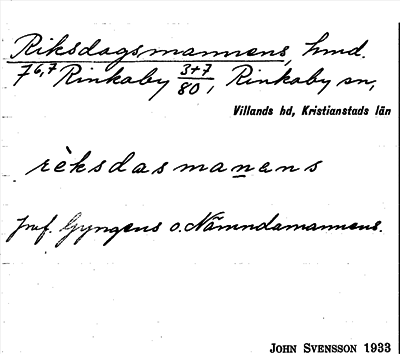 Riksdagsmannens, hmd.
7⁶,⁷ Rinkaby 3+7/80, Rinkaby sn,
Villands hd, Kristianstads län
rèksdasmanens
jmf. Gyngens o. Nämndamannens.
JOHN SVENSSON 1933